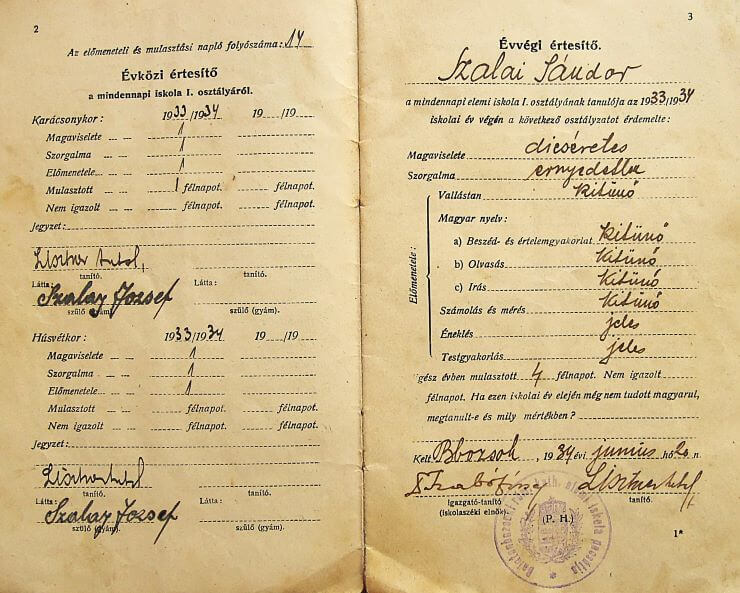 2
Az előmeneteli és mulasztási napló folyószáma: 14
Évközi értesítő
a mindennapi iskola I. osztályáról.
Karácsonykor: 1933/1934 19 /19
Magaviselete 1
Szorgalma 1
Előmenetele 1
Mulasztott 1 félnapot. félnapot.
Nem igazolt félnapot. félnapot.
Jegyzet:
tanító. tanító.
Látta: Látta:
Szalay József
szülő (gyám). szülő (gyám).
Húsvétkor: 1933/1934 19 /19
Magaviselete 1
Szorgalma 1
Előmenetele 1
Mulasztott félnapot. félnapot.
Nem igazolt félnapot. félnapot.
Jegyzet:
tanító. tanító.
Látta: Látta:
Szalay József
szülő (gyám). szülő (gyám).
3
Évvégi értesítő.
Szalai Sándor
a mindennapi elemi iskola I. osztályának tanulója az 1933/1934
iskolai év végén a következő osztályzatot érdemelte:
Magaviselete dicséretes
Szorgalma ernyedetlen
Előmenetele:
Vallástan kitünő
Magyar nyelv:
a) Beszéd- és értelemgyakorlat kitünő
b) Olvasás kitünő
c) Irás kitünő
Számolás és mérés kitünő
Éneklés jeles
Testgyakorlás jeles
gész évben mulasztott 4 félnapot. Nem igazolt
félnapot. Ha ezen iskolai év elején még nem tudott magyarul,
megtanult-e és mily mértékben?
Kelt Bbozsok, 1934 évi junius hó 20 n.
igazgató-tanító tanító.
(iskolaszéki elnök).
(P. H.)
1*